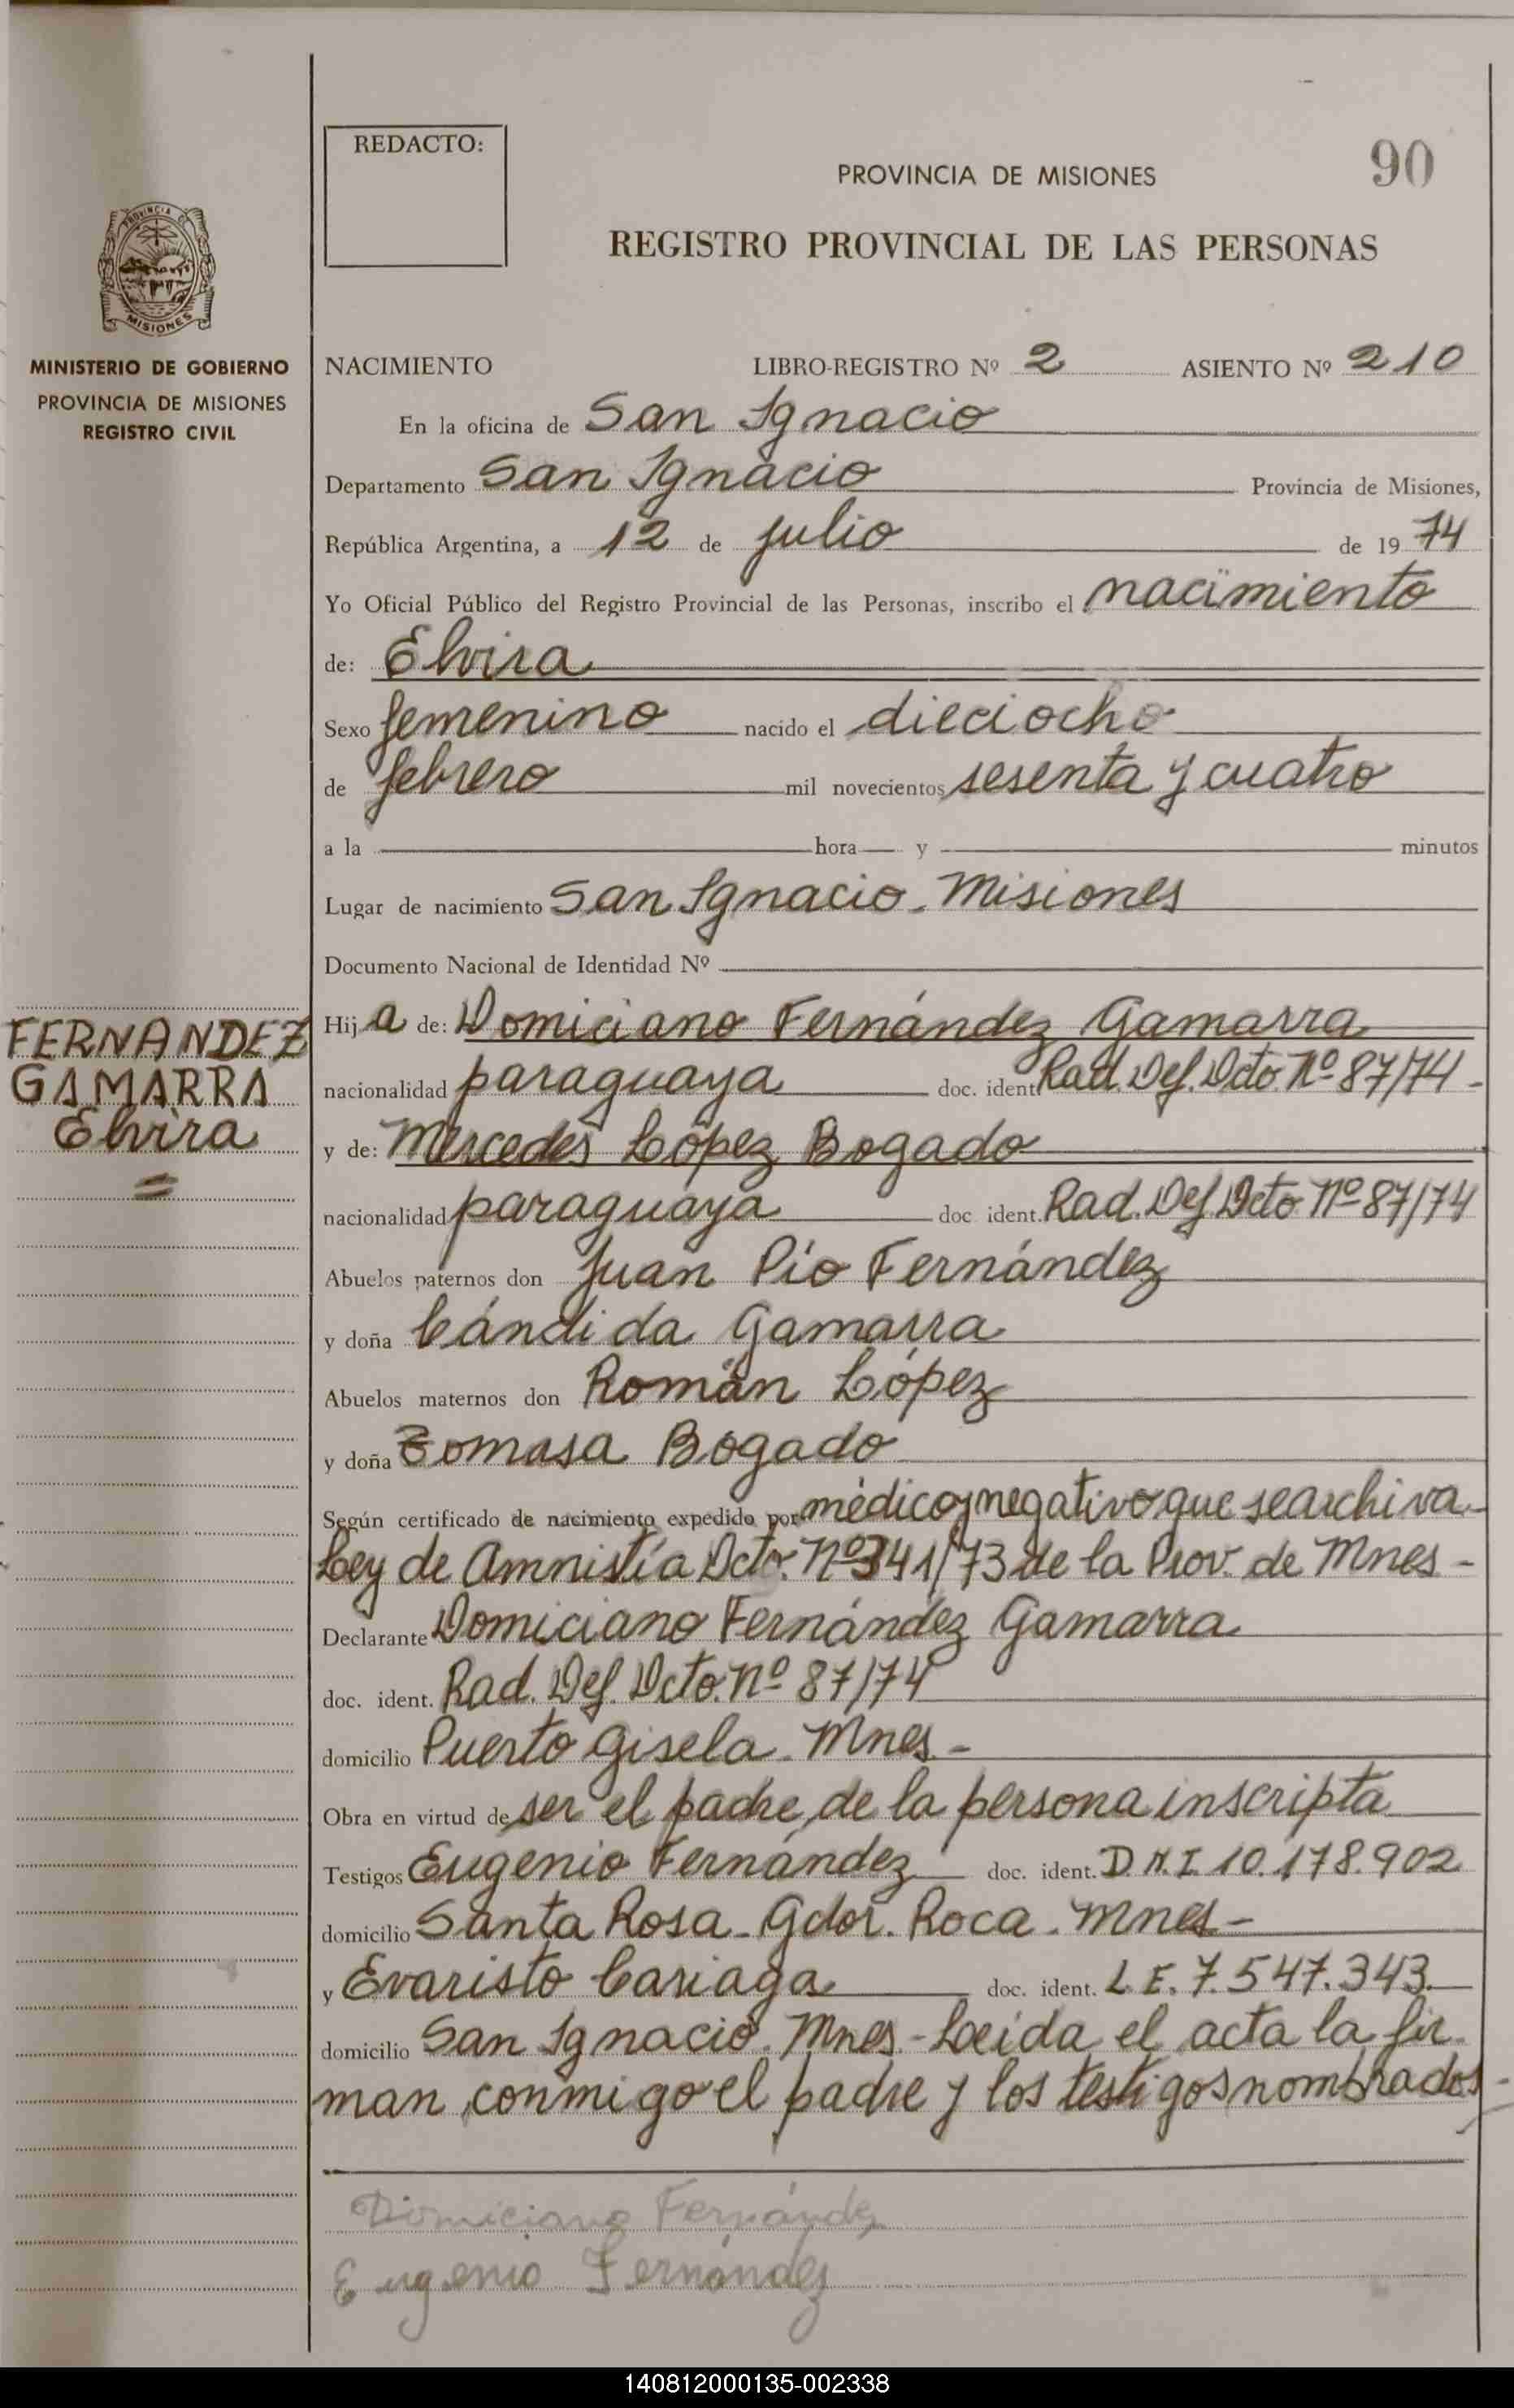 REDACTO:
90
PROVINCIA DE MISIONES
REGISTRO PROVINCIAL DE LAS PERSONAS
MISIONES
MINISTERIO DE GOBIERNO
PROVINCIA DE MISIONES
REGISTRO CIVIL
NACIMIENTO LIBRO-REGISTRO Nº 2 ASIENTO Nº 210
En la oficina de San Ignacio
Departamento San Ignacio Provincia de Misiones,
República Argentina, a 12 de julio de 19 74
Yo Oficial Público del Registro Provincial de las Personas, inscribo el nacimiento
de: Elvira
Sexo femenino nacido el dieciocho
de febrero mil novecientos sesenta y cuatro
a la hora y minutos
Lugar de nacimiento San Ignacio. Misiones
Documento Nacional de Identidad Nº
FERNANDEZ
GAMARRA
Elvira
Hija de: Domiciano Fernández Gamarra
nacionalidad paraguaya doc. ident. Rad. Def. Dcto. Nº 87/74-
y de: Mercedes López Bogado
nacionalidad paraguaya doc ident. Rad. Def. Dcto Nº 87/74
Abuelos paternos don Juan Pío Fernández
y doña Cándida Gamarra
Abuelos maternos don Román López
y doña Tomasa Bogado
Según certificado de nacimiento expedido por médico y negativo que se archiva-
Ley de Amnistía Dcto. Nº 341/73 de la Prov. de Mnes-
Declarante Domiciano Fernández Gamarra
doc. ident. Rad. Def. Dcto. Nº 87/74
domicilio Puerto Gisela. Mnes-
Obra en virtud de ser el padre de la persona inscripta
Testigos Eugenio Fernández doc. ident. D.N.I. 10.178.902
domicilio Santa Rosa-Gdor. Roca. Mnes-
y Evaristo Cariaga doc. ident. L.E. 7.547.343.
domicilio San Ignacio. Mnes.-Leída el acta la fir-
man conmigo el padre y los testigos nombrados-
Domiciano Fernández
Eugenio Fernández
140812000135-002338